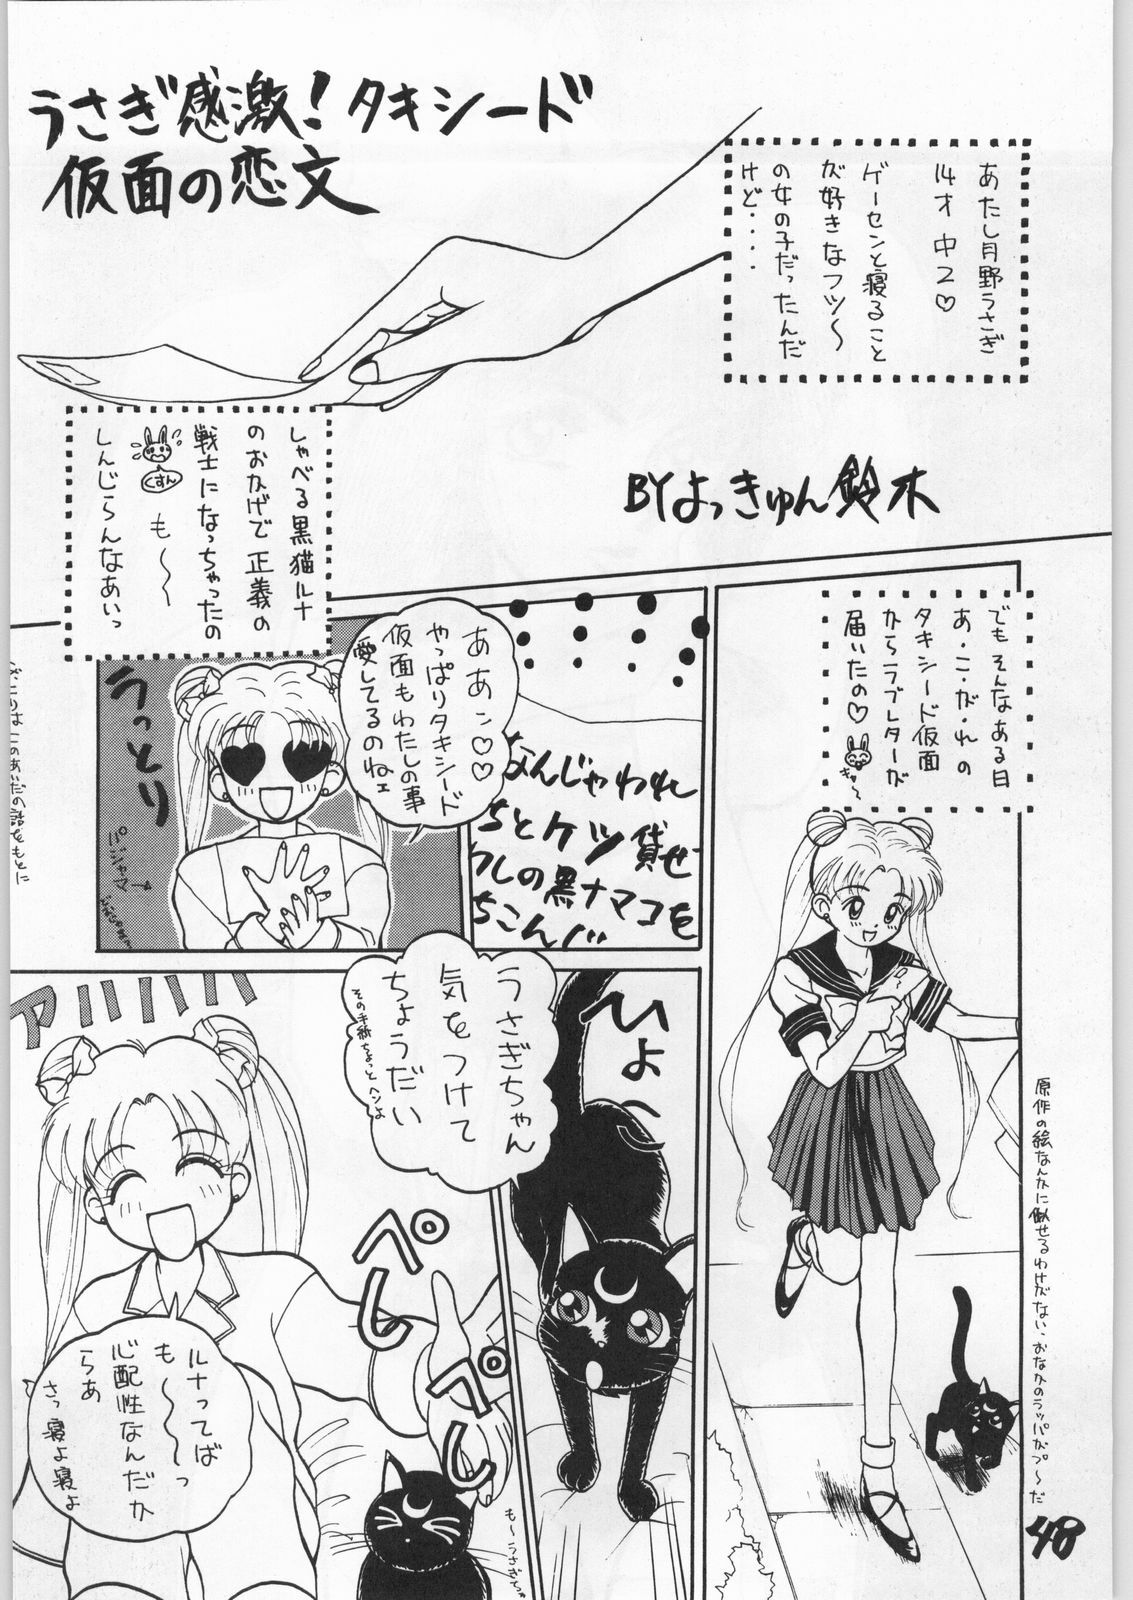 うさぎ感激！タキシード
仮面の恋文
あたし月野うさぎ
14才 中2♡
ゲーセンと寝ること
が好きなフツ〜
の女の子だったんだ
けど・・・・
しゃべる黒猫ルナ
のおかげで正義の
戦士になっちゃったの
くすん
も〜〜
しんじらんなあいっ
BYよっきゅん鈴木
でもそんなある日
あ・こ・が・れの
タキシード仮面
からラブレターが
届いたの♡
きゃ〜
原作の絵なんかに似せるわけがない、おなかのラッパがプ〜だ
なんじゃわれ
ちとケツ貸せ
ワレの黒ナマコを
ちこんバ
ああン♡♡
やっぱりタキシード
仮面もわたしの事
愛してるのねェ
うっとり
パジャマ→
ひょ〜
うさぎちゃん
気をつけて
ちょうだい
その手紙ちょっとヘンよ
アハハハハ
ペしペし
ルナってば
も〜〜っ
心配性なんだか
らあ
さっ寝よ寝よ
も〜うさぎてば
48